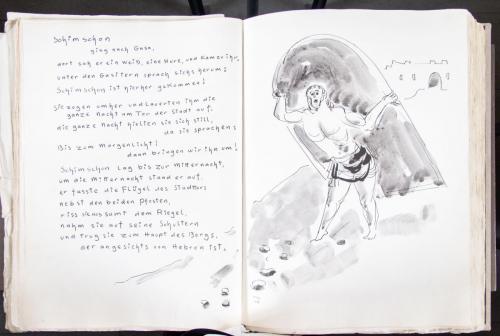 Schimschon
ging nach Gasa,
dort sah er ein Weib, eine Hure, und kam zu ihr,
unter den Gasitern sprach sichs herum:
Schimschon ist hierher gekommen!
Sie zogen umher und lauerten ihm die
ganze Nacht am Tor der Stadt auf.
die ganze Nacht hielten sie sich still,
da sie sprachen:
Bis zum Morgenlicht!
dann bringen wir ihn um!
Schimschon lag bis zur Mitternacht,
um die Mitternacht stand er auf,
er fasste die Flügel des Stadttors
nebst den beiden Pfosten,
riss sie aus samt dem Riegel,
nahm sie auf seine Schultern
und trug sie zum Haupt des Bergs,
der angesichts von Hebron ist.